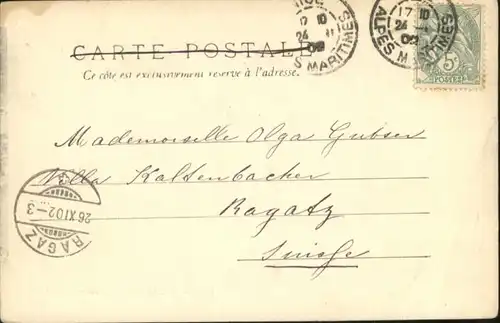 CARTE POSTALE
Ce côté est exclusivement réservé à l'adresse.
17 10
24 11
02
S MARITIMES
17 10
24
02
ALPES MARITIMES
5c
POSTES
Mademoiselle Olga Gubser
Villa Kaltenbacher
Ragatz
Suisse
RAGAZ
26.XI.02.-3